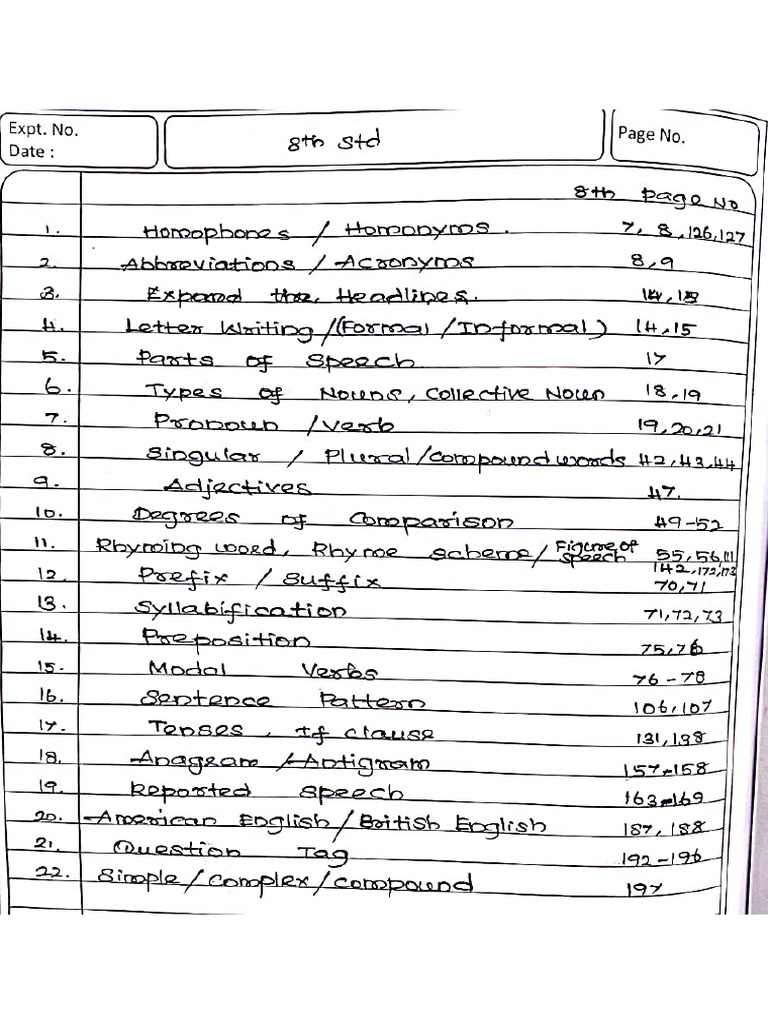 Expt. No.
Date :
8th Std
Page No.
8th Page No
1. Homophones / Homonyms. 7, 8, 126, 127
2. Abbreviations / Acronyms 8, 9
3. Expand the Headlines. 14, 15
4. Letter Writing / (Formal / Informal) 14, 15
5. Parts of Speech 17
6. Types of Nouns, Collective Noun 18, 19
7. Pronoun / Verb 19, 20, 21
8. Singular / Plural / Compound words 42, 43, 44
9. Adjectives 47.
10. Degrees of Comparison 49-52
11. Rhyming word, Rhyme scheme / Figure of Speech 55, 56, 111
142, 172, 173
12. Prefix / Suffix 70, 71
13. Syllabification 71, 72, 73
14. Preposition 75, 76
15. Modal Verbs 76-78
16. Sentence Pattern 106, 107
17. Tenses, If clause 131, 138
18. Anagram / Antigram 157-158
19. Reported Speech 163-169
20. American English / British English 187, 188
21. Question Tag 192-196
22. Simple / Complex / Compound 197